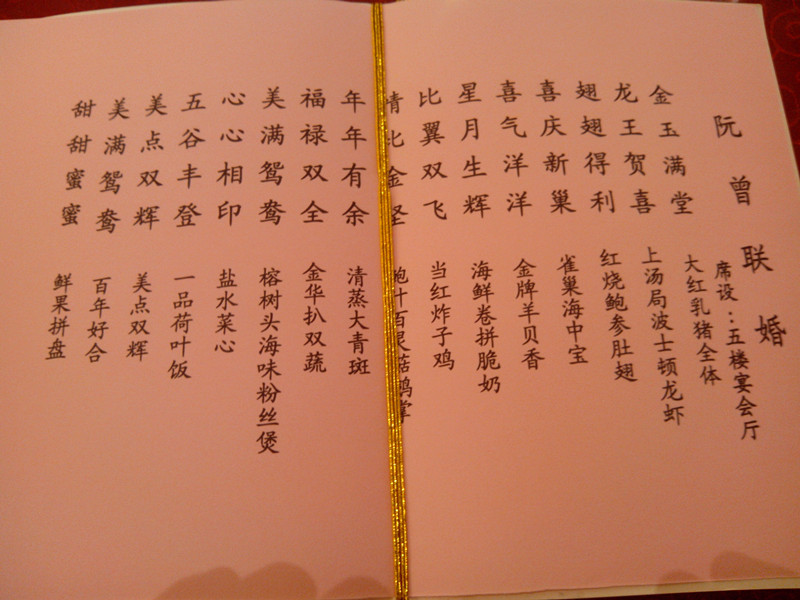 阮曾联婚
席设：五楼宴会厅
金玉满堂
大红乳猪全体
龙王贺喜
上汤局波士顿龙虾
翅翅得利
红烧鲍参肚翅
喜庆新巢
雀巢海中宝
喜气洋洋
金牌羊贝香
星月生辉
海鲜卷拼脆奶
比翼双飞
当红炸子鸡
情比金坚
鲍汁百灵菇鹅掌
年年有余
清蒸大青斑
福禄双全
金华扒双蔬
美满鸳鸯
榕树头海味粉丝煲
心心相印
盐水菜心
五谷丰登
一品荷叶饭
美点双辉
美点双辉
美满鸳鸯
百年好合
甜甜蜜蜜
鲜果拼盘